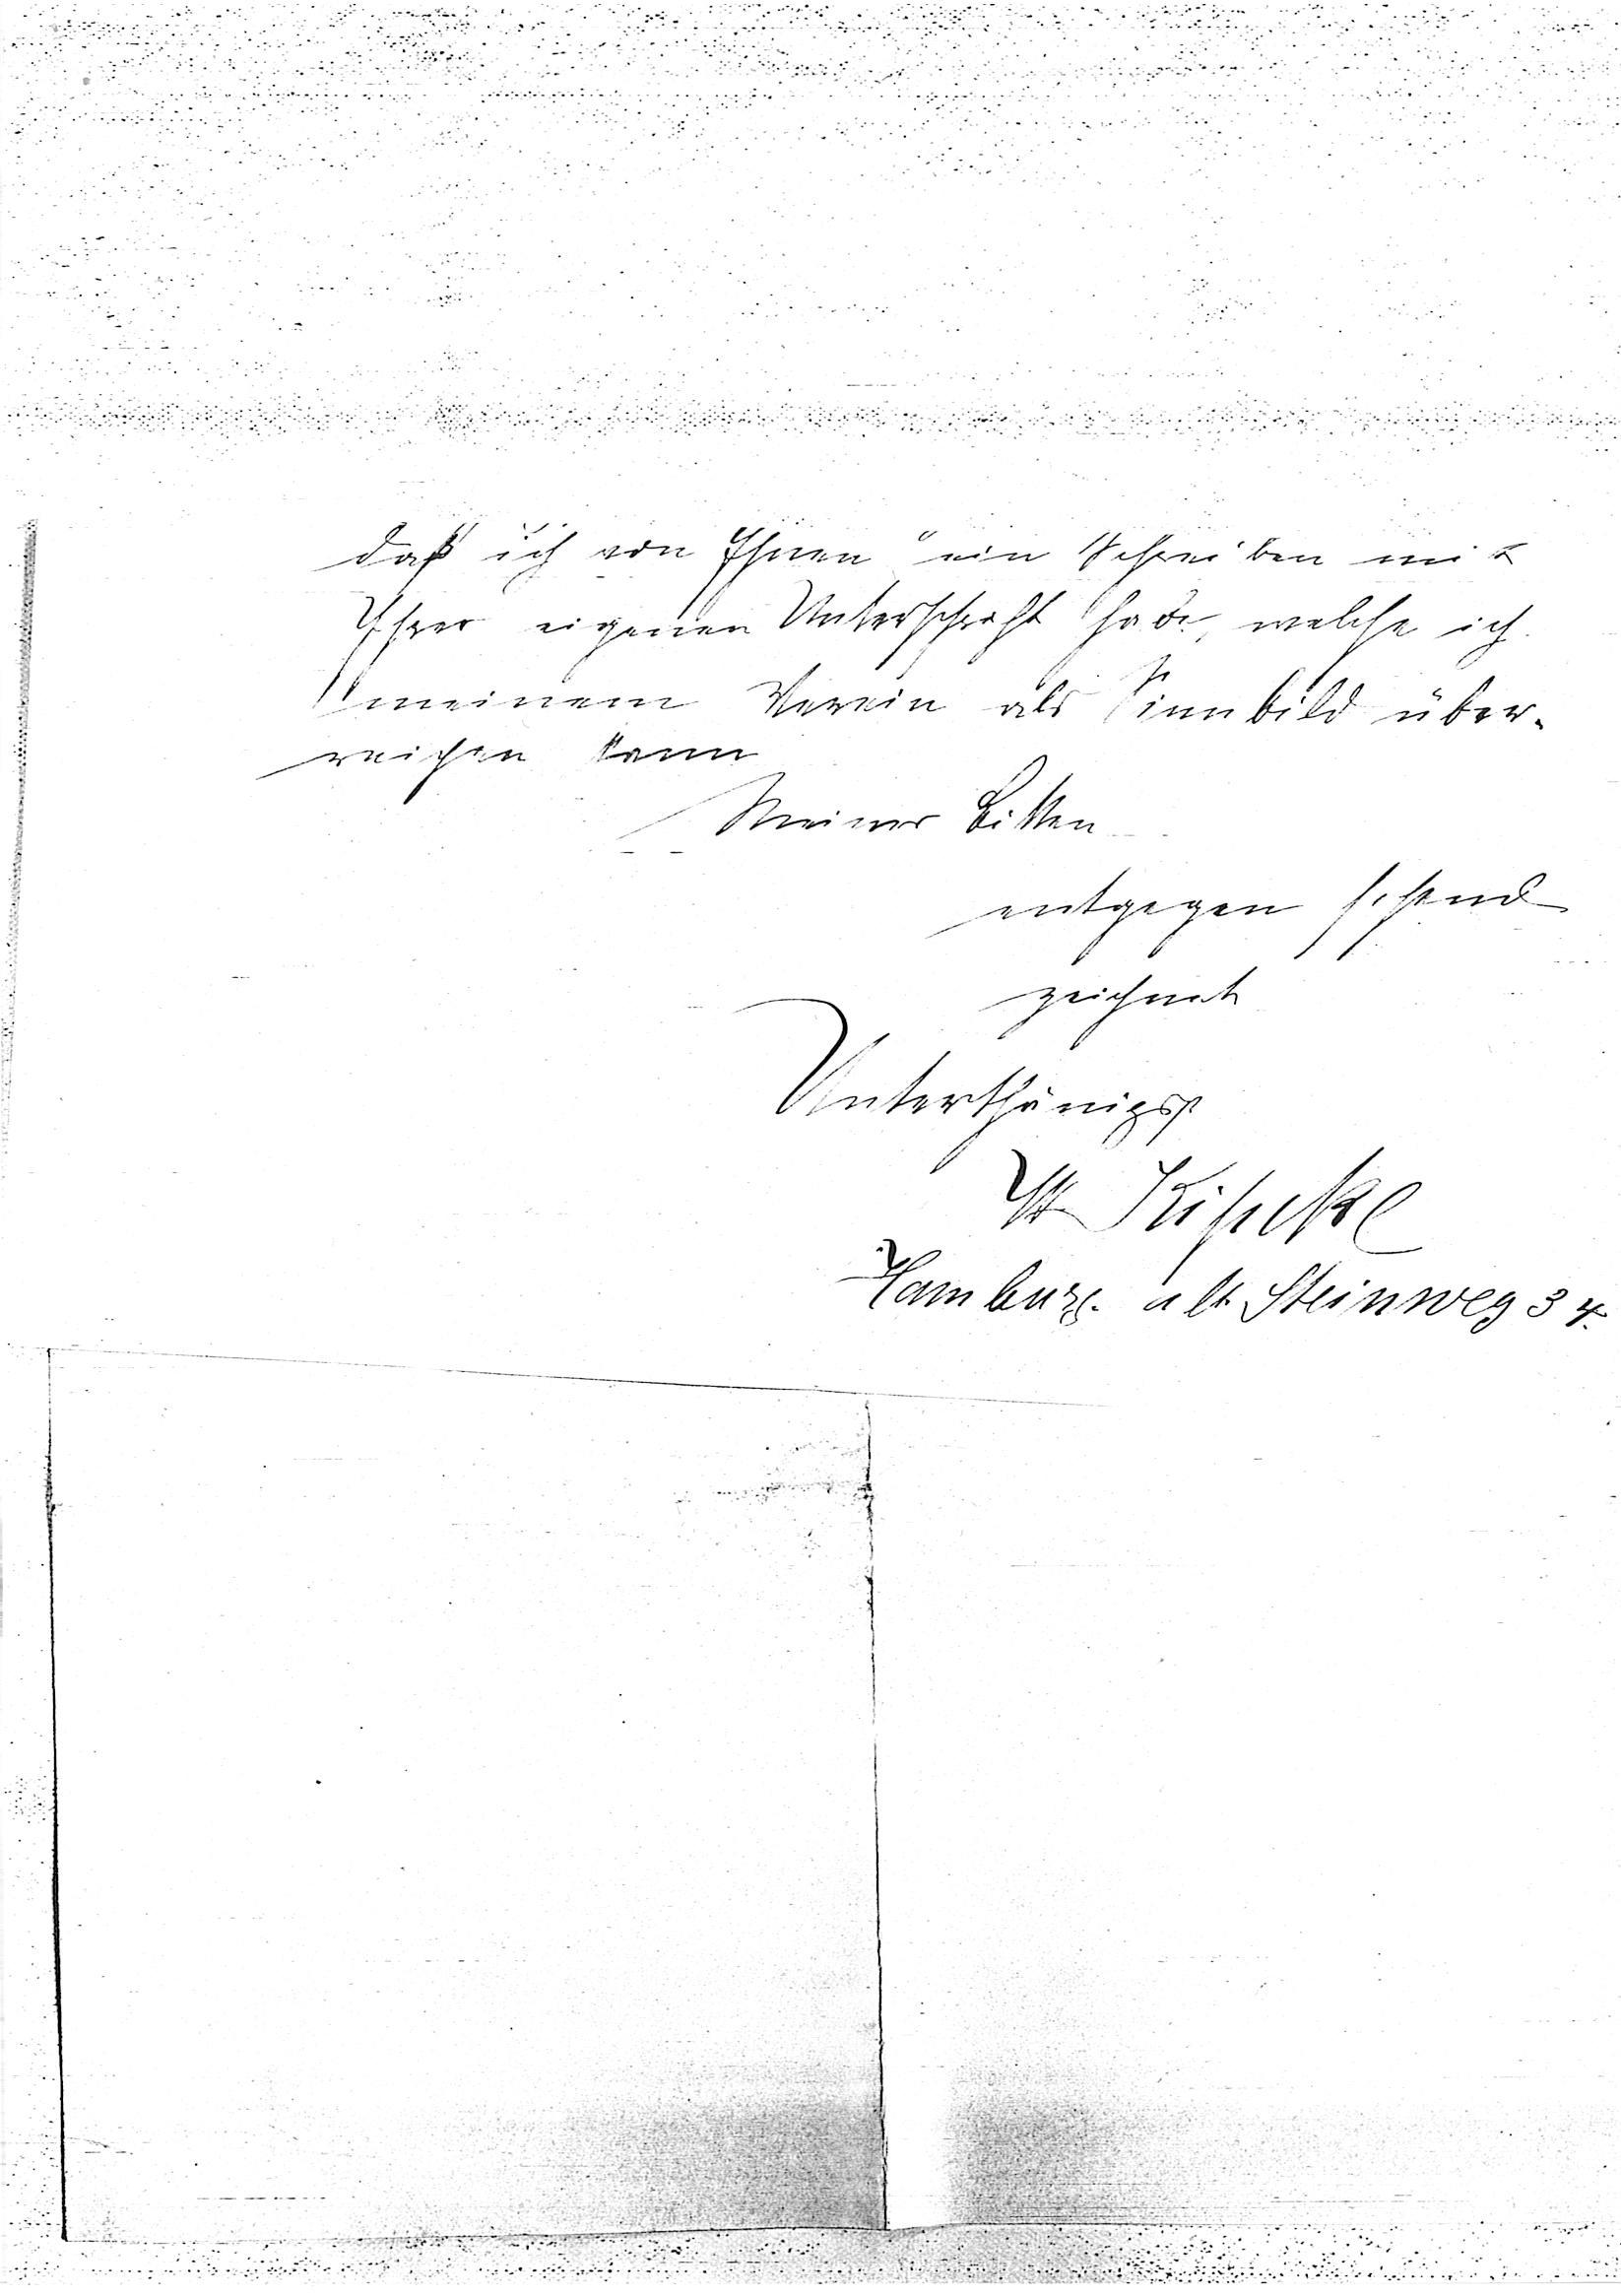 daß ich von Ihnen ein Schreiben mit
Ihrer eigenen Unterschrift habe, welche ich
meinem Verein als Sinnbild über-
reichen kann
Meiner Bitten
entgegen sehend
zeichnet
Unterthänigst
Hamburg. alt Steinweg 34.